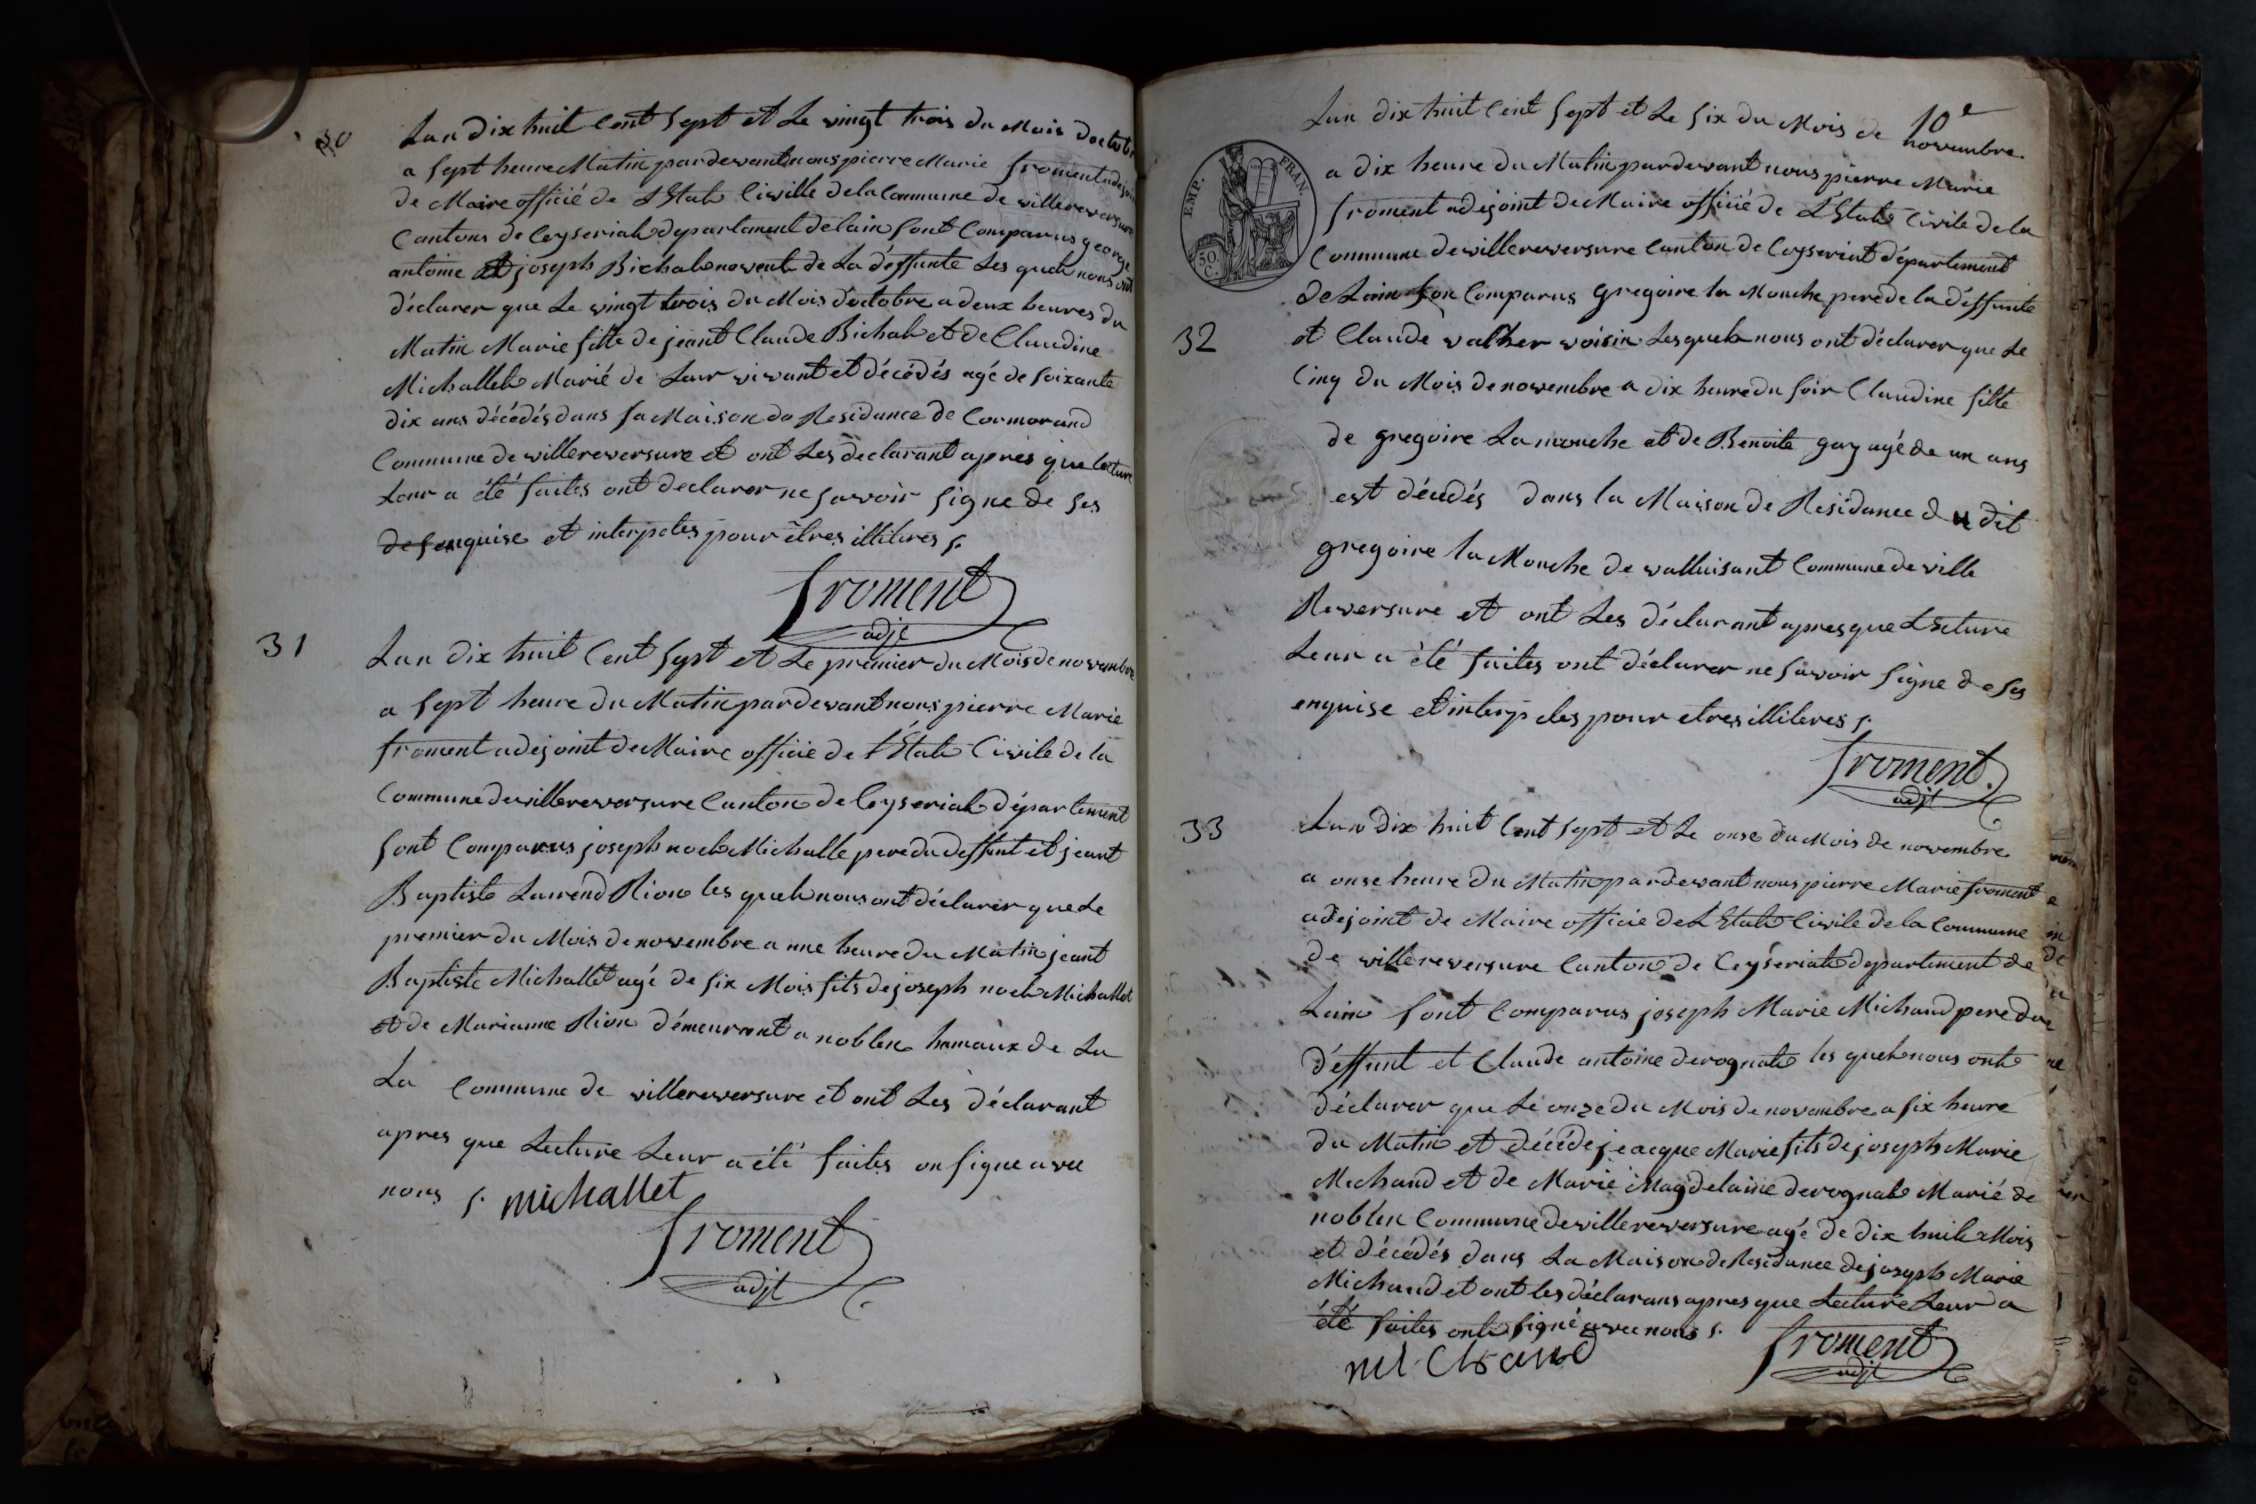 30
Lan dix huit Cent Sept et Le vingt trois du Mois doctobre
a Sept heure Matin pardevant nous pierre Marie froment adejoint
de Maire officié de L'Etat Civille de la Commune de villereversure
Cantons de Ceyseriat departement de lain sont Comparus george
antoine et joseph Bichat neveut de La deffunte Les quels nous ont
déclarer que Le vingt trois du Mois doctobre a deux heures du
Matin Marie fille de jeant Claude Bichat et de Claudine
Michallet Marié de Leur vivant et décédés agé de soixante
dix ans décédés dans sa Maison de Residance de Cormorand
Commune de villereversure et ont Les declarant aprés que lecture
Leur a été faites ont declarer ne savoir signe de ses
enquise et interpeles pour êtres illiteres s.
froment
adjt
31
Lan dix huit Cent Sept et Le premier du Mois de novembre
a Sept heure du Matin pardevant nous pierre Marie
froment adejoint de Maire officié de l'Etat Civile de la
Commune de villereversure Canton de Ceyseriat département
sont Comparus joseph noel Michalle pere du deffunt et jeant
Baptiste Laurend Rion les quels nous ont déclarer que Le
premier du Mois de novembre a une heure du Matin jeant
Baptiste Michallet agé de six Mois fils de joseph noel Michallet
et de Marianne Rion démeurant a noblen hamaux de La
La Commune de villereversure et ont Les déclarant
apres que Lecture Leur a été faites on signe avec
nous s. michallet
froment
adjt
10e
Lan dix huit Cent Sept et Le six du Mois de novembre.
EMP. FRAN.
50 C.
a dix heure du Matin pardevant nous pierre Marie
froment adejoint de Maire officié de L'Etat Civile de la
Commune de villereversure Canton de Ceyseriat département
de Lain son Comparus gregoire la Mouche pere de la déffunte
32
et Claude valther voisin Lesquels nous ont déclarer que Le
Cinq du Mois de novembre a dix heure du soir Claudine fille
de gregoire La mouche et de Benoite gay agé de un ans
est décédés dans la Maison de Residance du dit
gregoire la Mouche de valluisant Commune de ville
Reversure et ont Les déclarant apres que Lecture
Leur a été faites ont déclarer ne savoir signe de ses
enquise et interpeles pour etres illiteres s.
froment.
adjt
33
Lan dix huit Cent Sept et Le onse du Mois de novembre
a onse heure du Matin pardevant nous pierre Marie froment
adejoint de Maire officié de L'Etat Civile de la Commune
de villereversure Canton de Ceyseriat departement de
Lain sont Comparus joseph Marie Michaud pere du
déffunt et Claude antoine derognat les quels nous ont
déclarer que Le onze du Mois de novembre a six heure
du Matin et décéde jeacque Marie fils de joseph Marie
Michaud et de Marie Magdelaine derognat Marié de
noblen Commune de villereversure agé de dix huit Mois
et décédés dans La Maison de Residance de joseph Marie
Michaud et ont les déclarans apres que Lecture Leur a
été faites onte signé avec nous s.
michaud
froment
adjt